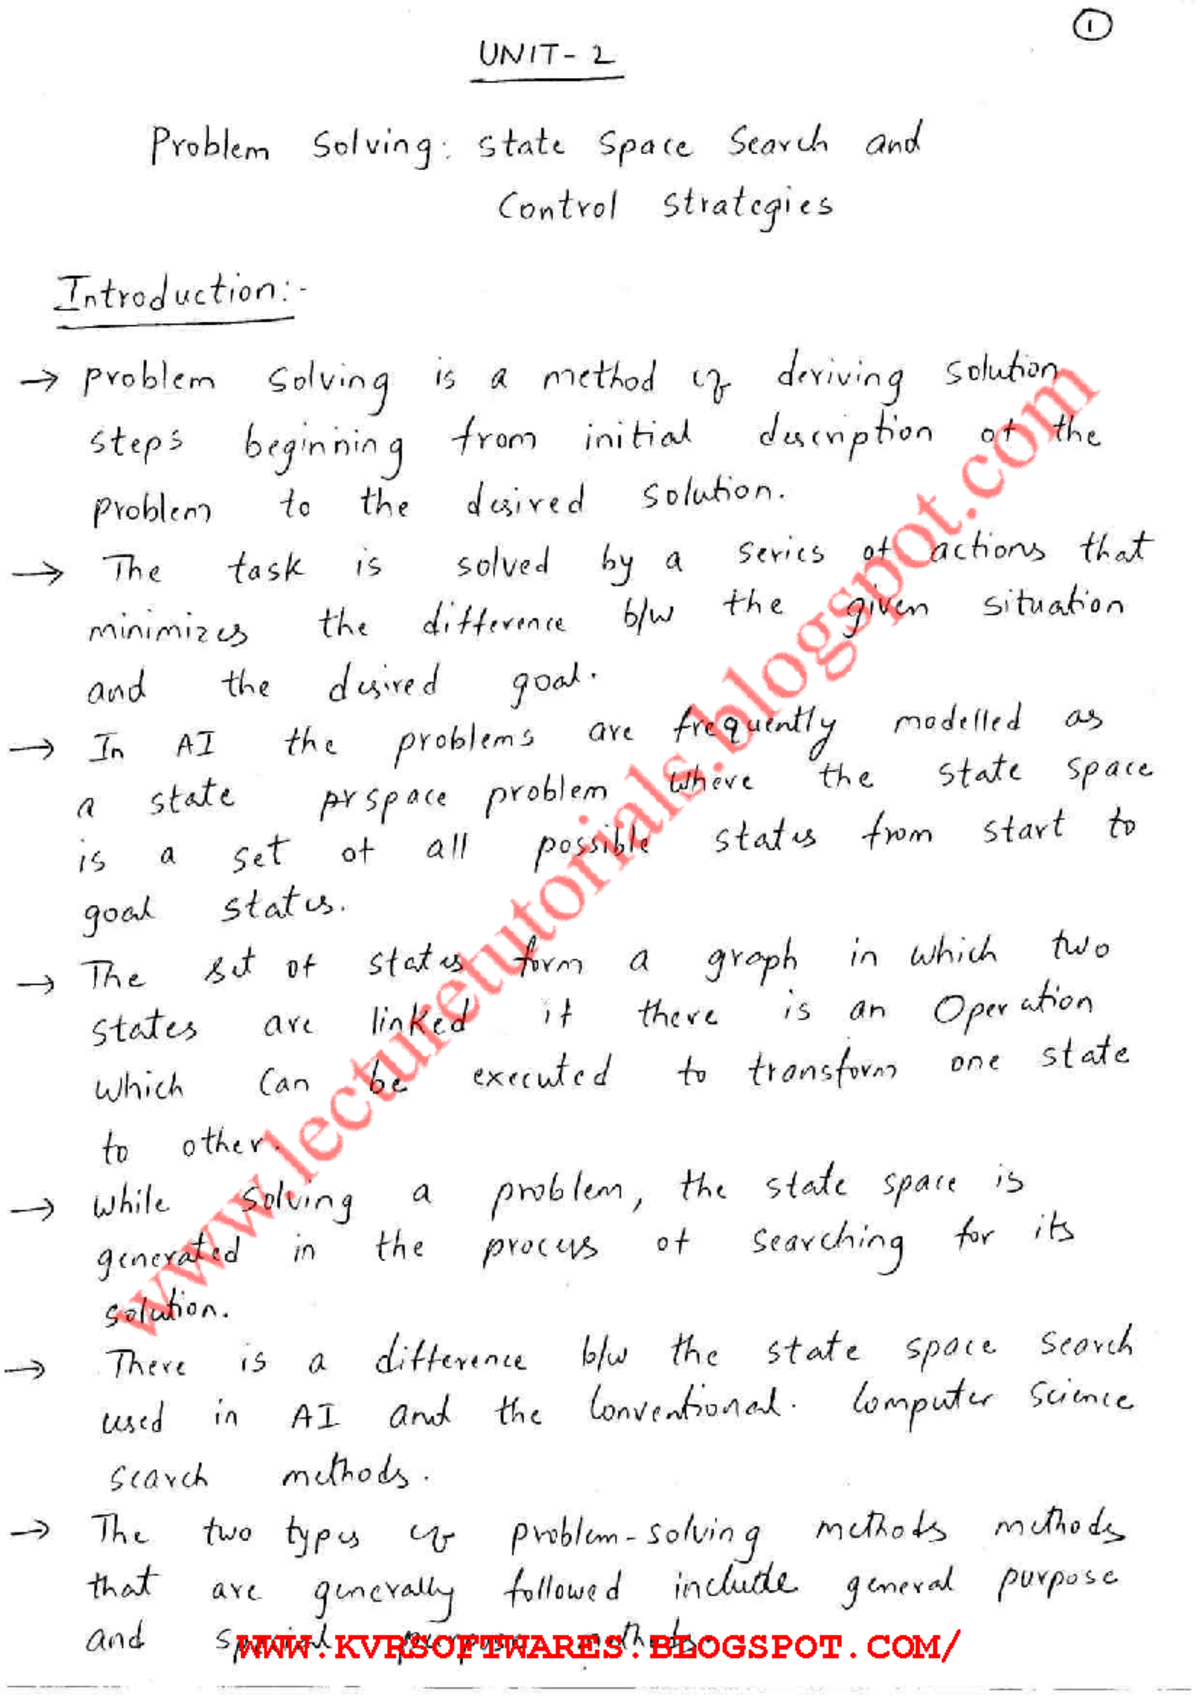 1
UNIT - 2
Problem Solving: State Space Search and
Control Strategies
Introduction:-
→ problem solving is a method of deriving solution
steps beginning from initial description of the
problem to the desired solution.
→ The task is solved by a series of actions that
minimizes the difference b/w the given situation
and the desired goal.
→ In AI the problems are frequently modelled as
a state prspace problem where the state space
is a set of all possible states from start to
goal states.
→ The set of states form a graph in which two
states are linked if there is an Operation
which Can be executed to transform one state
to other.
→ while solving a problem, the state space is
generated in the process of searching for its
solution.
→ There is a difference b/w the state space search
used in AI and the Conventional. Computer Science
search methods.
→ The two types of problem-solving methods methods
that are generally followed include general purpose
and special purpose methods.
www.lecturetutorials.blogspot.com
WWW.KVRSOFTWARES.BLOGSPOT.COM/